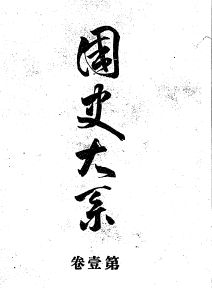 國史大系
第壹卷